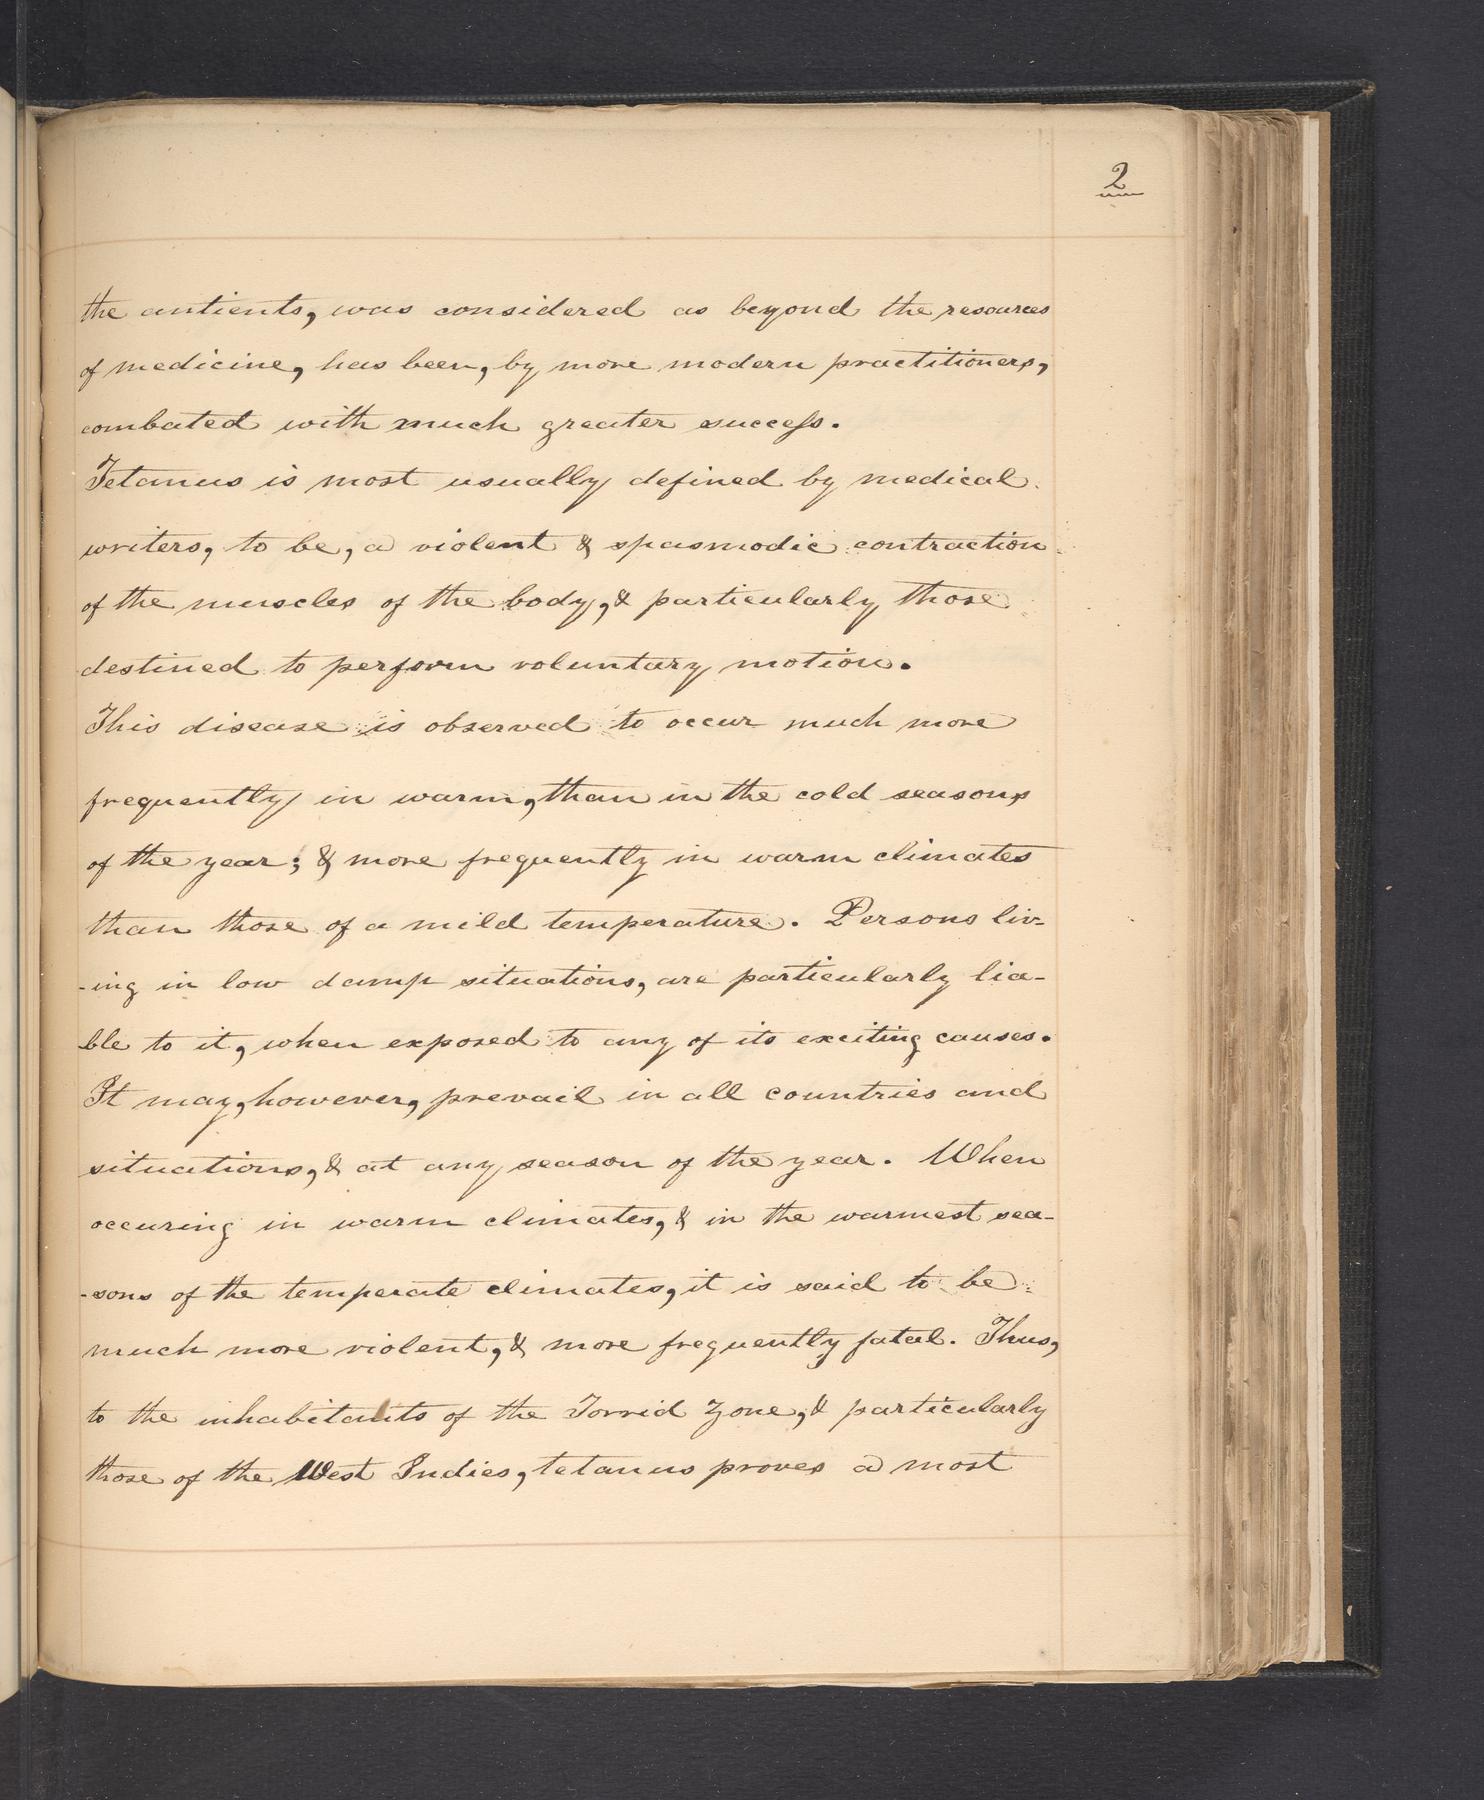 2
the antients, was considered as beyond the resources
of medicine, has been, by more modern practitioners,
combated with much greater success.
Tetanus is most usually defined by medical
writers, to be, a violent & spasmodic contraction
of the muscles of the body, & particularly those
destined to perform voluntary motion.
This disease is observed to occur much more
frequently in warm, than in the cold seasons
of the year; & more frequently in warm climates
than those of a mild temperature. Persons liv-
-ing in low damp situations, are particularly lia-
ble to it, when exposed to any of its exciting causes.
It may, however, prevail in all countries and
situations, & at any season of the year. When
occuring in warm climates, & in the warmest sea-
-sons of the temperate climates, it is said to be
much more violent, & more frequently fatal. Thus,
to the inhabitants of the Torrid Zone, & particularly
those of the West Indies, tetanus proves a most